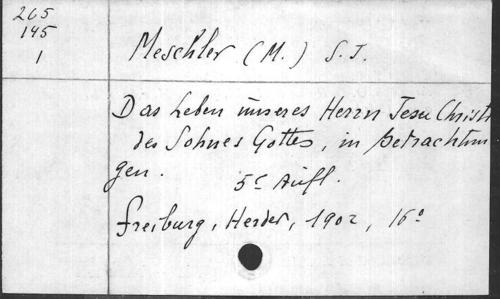 265
145
1
Meschler (M.) S. J.
Das Leben unseres Herrn Jesu Christi
des Sohnes Gottes, in Betrachtun
gen.
5e Aufl.
Freiburg, Herder, 1902, 16°